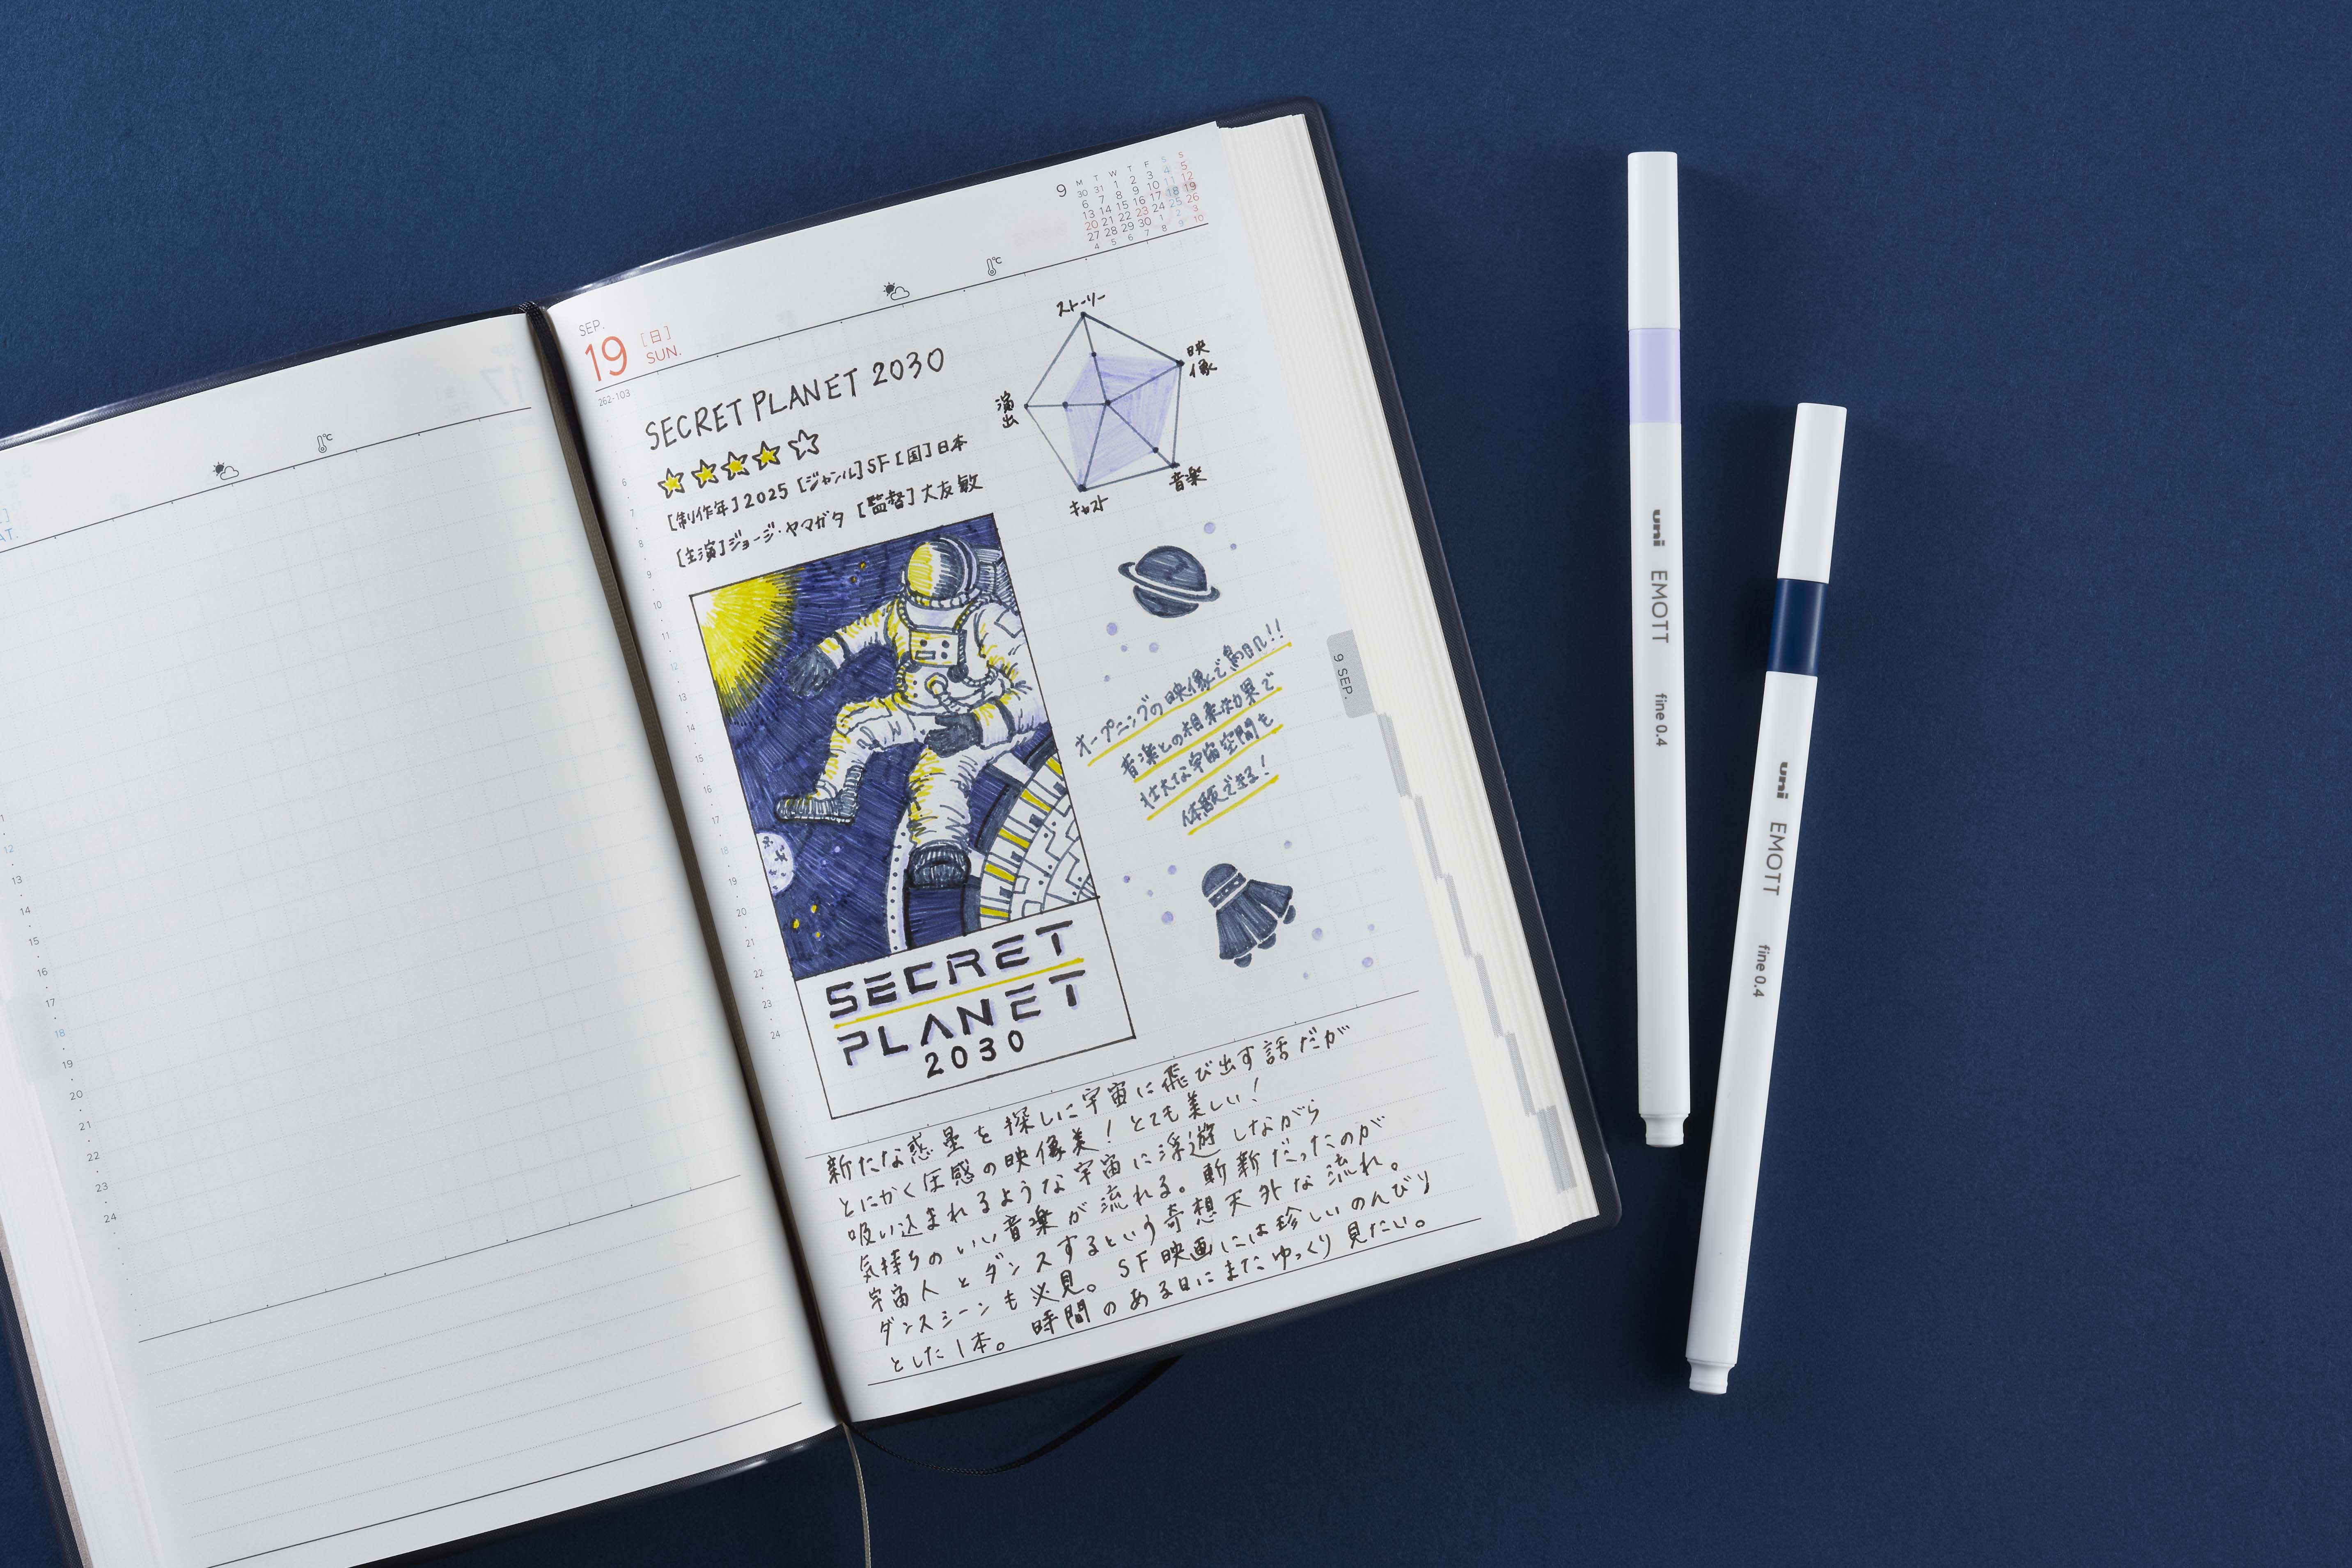 SEP.
19 [日]
SUN.
262-103
9
M T W T F S S
30 31 1 2 3 4 5
6 7 8 9 10 11 12
13 14 15 16 17 18 19
20 21 22 23 24 25 26
27 28 29 30 1 2 3
4 5 6 7 8 9 10
°C
°C
SECRET PLANET 2030
[制作年]2025 [ジャンル]SF [国]日本
[主演]ジョージ・ヤマガタ [監督]大友敏
ストーリー
映像
音楽
キャスト
演出
オープニングの映像で鳥肌!!
音楽との相乗効果で
壮大な宇宙空間を
体験できる!
SECRET
PLANET
2030
新たな惑星を探しに宇宙に飛び出す話だが
とにかく圧感の映像美!とても美しい!
吸い込まれるような宇宙に浮遊しながら
気持ちのいい音楽が流れる。斬新だったのが
宇宙人とダンスするという奇想天外な流れ。
ダンスシーンも必見。SF映画には珍しいのんびり
とした1本。時間のある日にまたゆっくり見たい。
9 SEP.
6
7
8
9
10
11
12
13
14
15
16
17
18
19
20
21
22
23
24
11
12
13
14
15
16
17
18
19
20
21
22
23
24
uni EMOTT fine 0.4
uni EMOTT fine 0.4